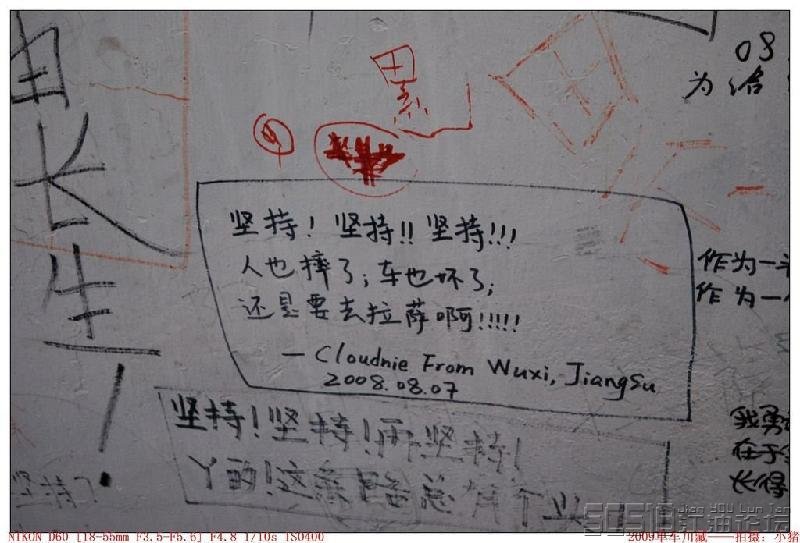 由长生!
累
08
为
坚持! 坚持!! 坚持!!!
人也摔了; 车也坏了;
还是要去拉萨啊!!!!!
— Cloudnie From Wuxi, JiangSu
2008.08.07
作为一
作为一
坚持!坚持!再坚持!
丫的!这条路总有个
我勇
在于
长得
坚持了
NIKON D60 [18-55mm F3.5-F5.6] F4.8 1/10s ISO400
2009单车川藏——拍摄: 小猪